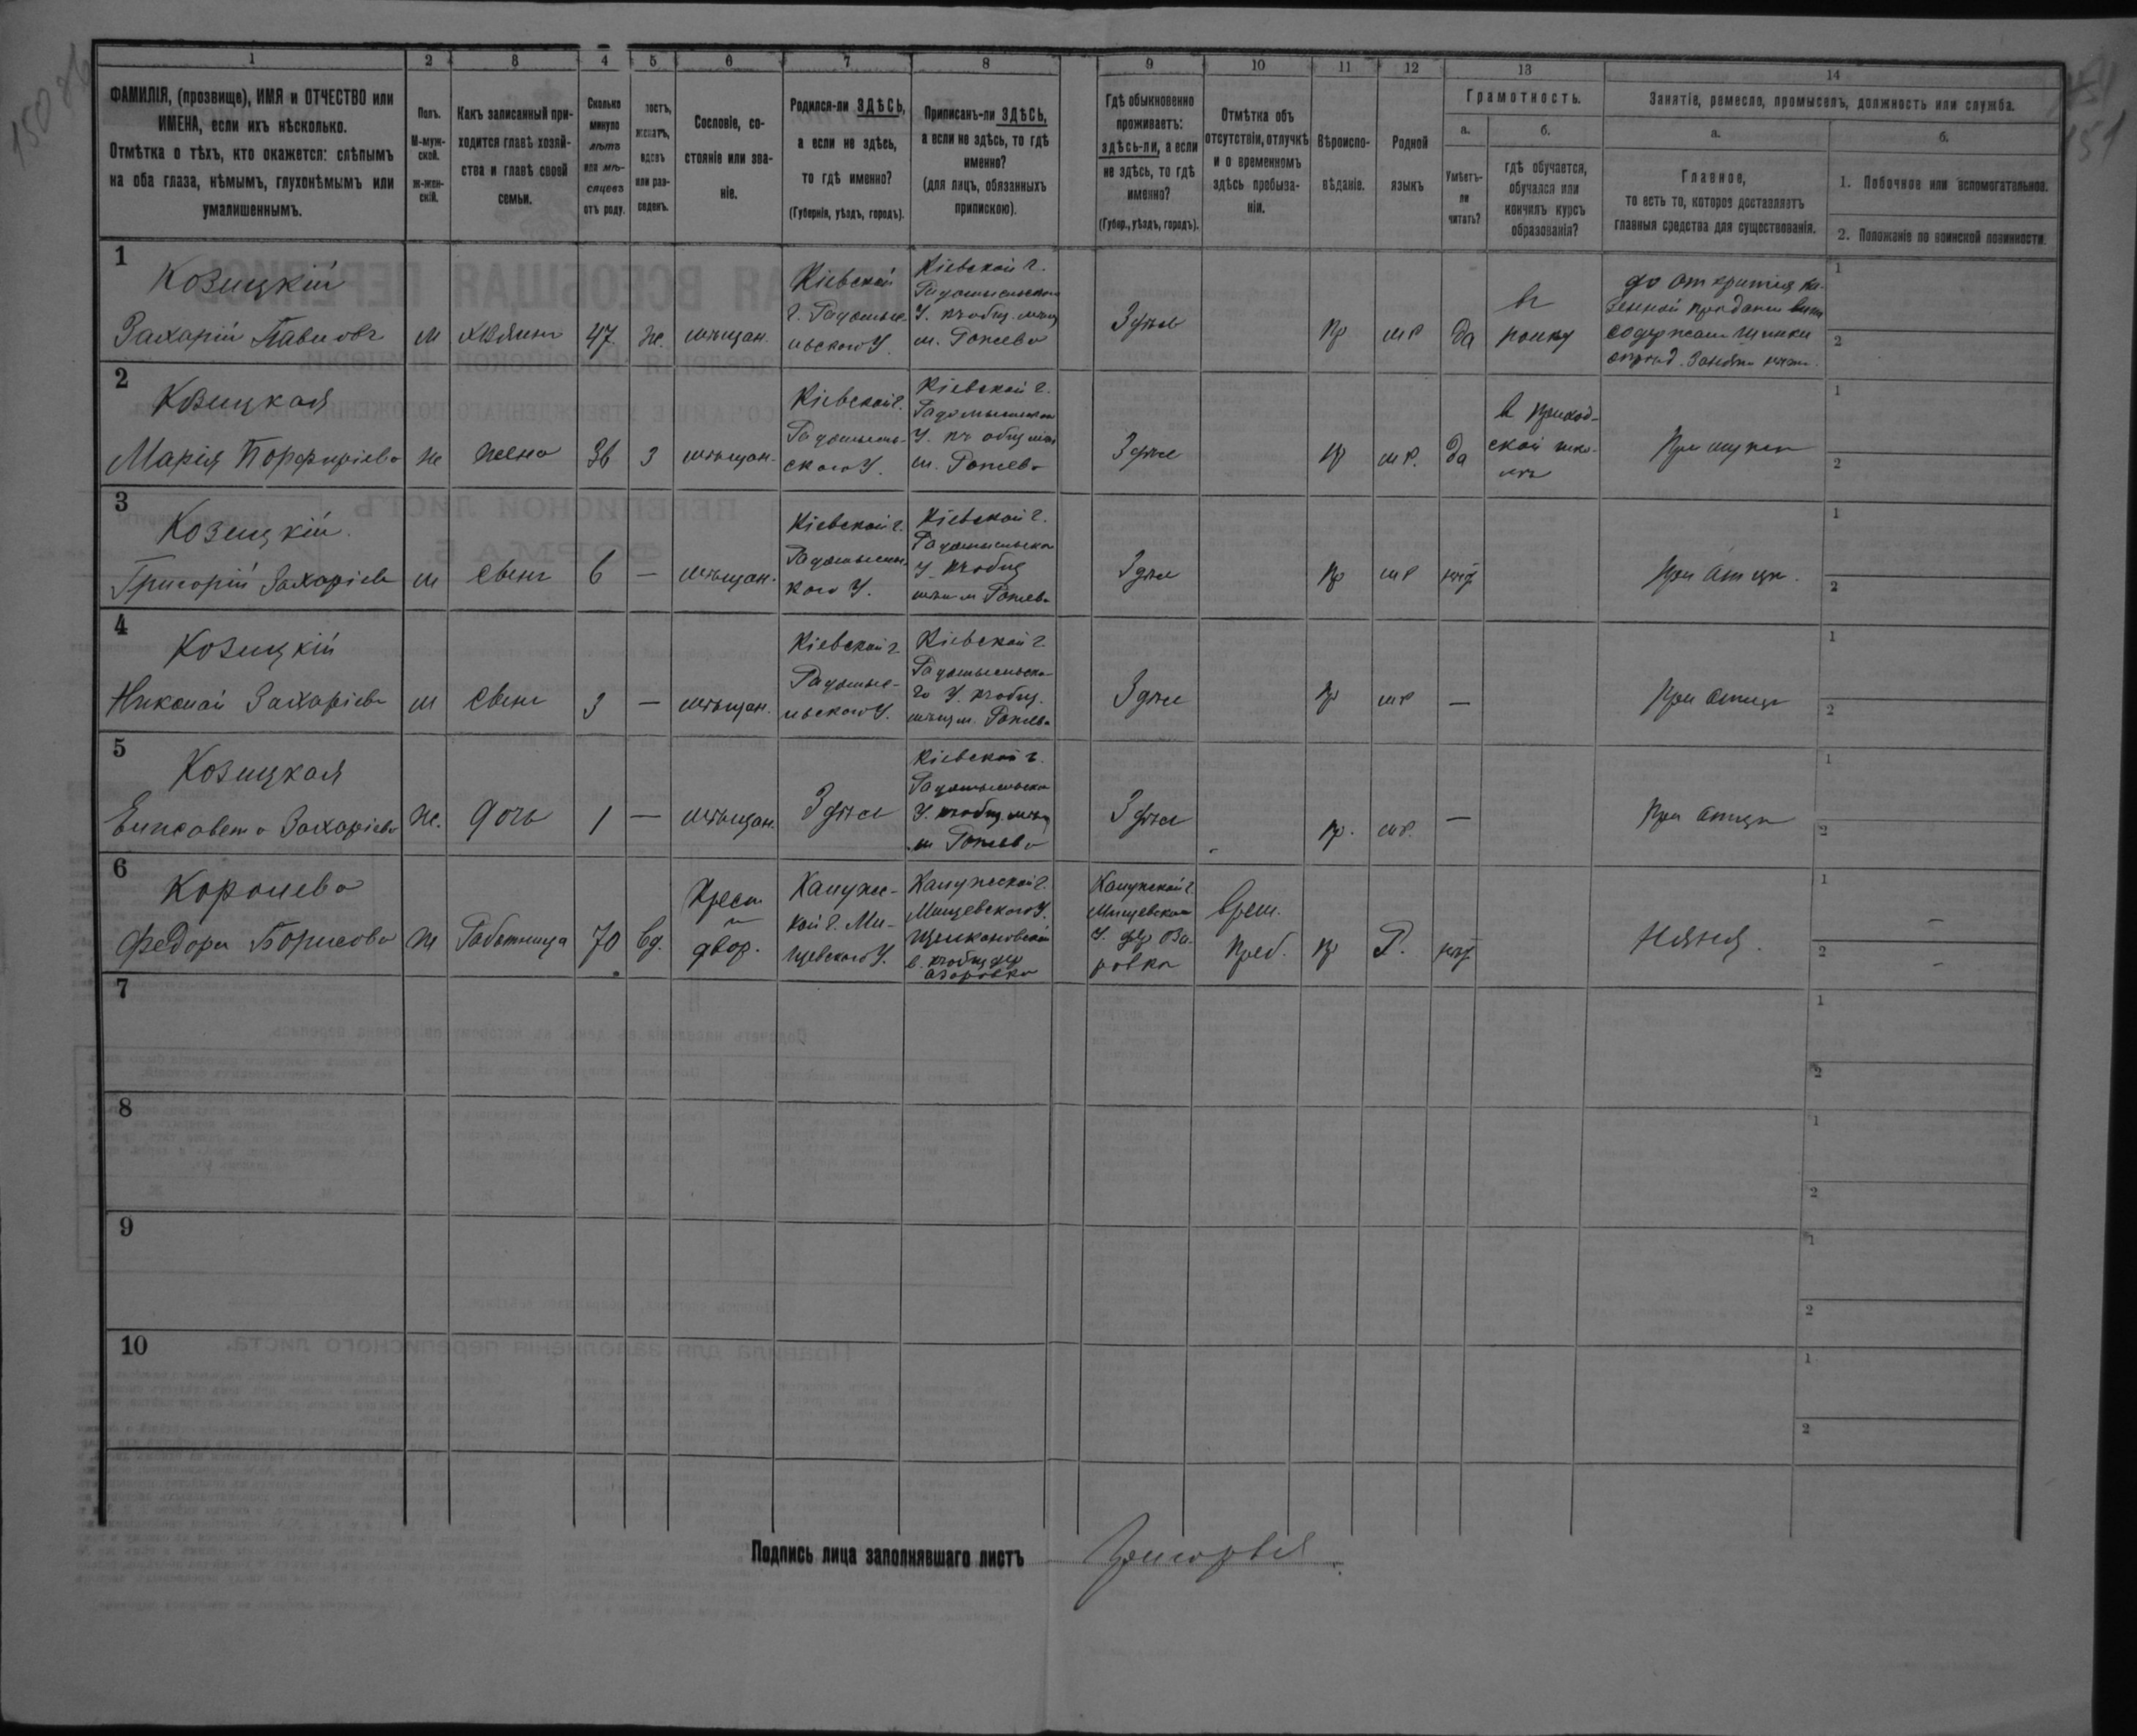 150 об
151
1
2
3
4
5
6
7
8
9
10
11
12
13
14
ФАМИЛІЯ, (прозвище), ИМЯ и ОТЧЕСТВО или
ИМЕНА, если ихъ нѣсколько.
Отмѣтка о тѣхъ, кто окажется: слѣпымъ
на оба глаза, нѣмымъ, глухонѣмымъ или
умалишеннымъ.
Полъ.
М-муж-
ской.
ж-жен-
скій.
Какъ записанный при-
ходится главѣ хозяй-
ства и главѣ своей
семьи.
Сколько
минуло
лѣтъ
или мѣ-
сяцевъ
отъ роду.
лостъ,
женатъ,
вдовъ
или раз-
веденъ.
Сословіе, со-
стояніе или зва-
ніе.
Родился-ли ЗДѢСЬ,
а если не здѣсь,
то гдѣ именно?
(Губернія, уѣздъ, городъ).
Приписанъ-ли ЗДѢСЬ,
а если не здѣсь, то гдѣ
именно?
(для лицъ, обязанныхъ
припискою).
Гдѣ обыкновенно
проживаетъ:
здѣсь-ли, а если
не здѣсь, то гдѣ
именно?
(Губер., уѣздъ, городъ).
Отмѣтка объ
отсутствіи, отлучкѣ
и о временномъ
здѣсь пребыва-
ніи.
Вѣроиспо-
вѣданіе.
Родной
языкъ
Грамотность.
а.
Умѣетъ-
ли
читать?
б.
гдѣ обучается,
обучался или
кончилъ курсъ
образованія?
Занятіе, ремесло, промыселъ, должность или служба.
а.
Главное,
то есть то, которое доставляетъ
главныя средства для существованія.
б.
1. Побочное или вспомогательное.
2. Положеніе по воинской повинности.
1
Козицкій
Захарій Павловъ
м
хозяинъ
47
ж.
мѣщан.
Кіевской
г. Радомыс-
льскаго У.
Кіевской г.
Радомысльскаго
У. къ общ. мѣщ
м. Рожева
Здѣсь
пр
мр
да
въ
полку
до открытія ка-
зенной продажи вина
содержалъ шинки
1
2
2
Козицкая
Марія Порфиріева
ж
жена
36
з
мѣщан.
Кіевской г.
Радомысль-
скаго У.
Кіевской г.
Радомысльскаго
У. къ общ мѣщ
м. Рожева
Здѣсь
пр
мр.
да
въ приход-
ской шко-
лѣ
При мужѣ
1
2
3
Козицкій
Григорій Захаріевъ
м
сынъ
6
—
мѣщан.
Кіевской г.
Радомысльс-
каго У.
Кіевской г.
Радомысльска
У. къ общ
мѣщ м Рожева
Здѣсь
пр
мр
нѣт
при отцѣ.
1
2
4
Козицкій
Николай Захаріевъ
м
сынъ
3
—
мѣщан.
Кіевской г.
Радомыс-
льскаго У.
Кіевской г.
Радомысльска-
го У. къ общ.
мѣщ м. Рожева
Здѣсь
пр
мр
—
При отцѣ
1
2
5
Козицкая
Елисавета Захаріева
ж.
дочь
1
—
мѣщан.
Здѣсь
Кіевской г.
Радомысльска
У. къ общ. мѣщ
м Рожева
Здѣсь
пр.
мр.
—
При отцѣ
1
2
6
Королева
Федора Борисова
ж
Работница
70
вд.
Крест
двор.
Калужс-
кой г. Ми-
щевскаго У.
Калужской г.
Мищевскаго У.
в. къ общ дер
Азаровка
Калужской г.
Мищевскаго
У. дер Аза-
ровка
врем.
преб.
пр
Р.
нѣт
Няня.
1 –
2 –
7
1
2
8
1
2
9
1
2
10
1
2
Подпись лица заполнявшаго листъ